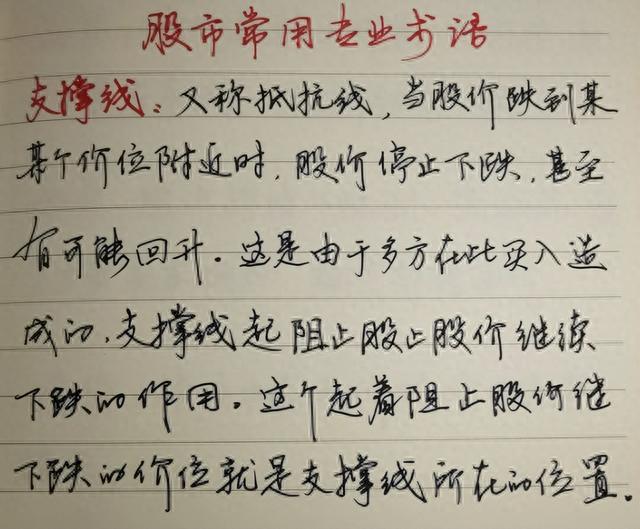 股市常用专业术语
支撑线：又称抵抗线，当股价跌到某
某个价位附近时，股价停止下跌，甚至
有可能回升。这是由于多方在此买入造
成的，支撑线起阻止股止股价继续
下跌的作用。这个起着阻止股价继
下跌的价位就是支撑线所在的位置。